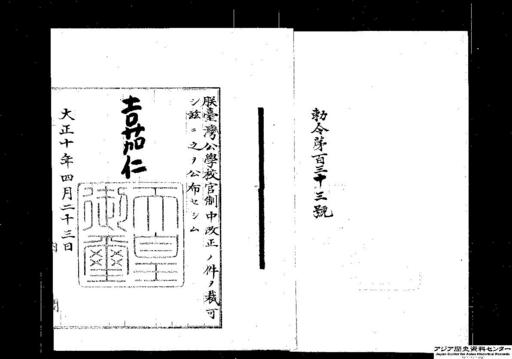 勅令第百三十三號
朕臺灣公學校官制中改正ノ件ヲ裁可
シ玆ニ之ヲ公布セシム
嘉仁
天皇御璽
大正十年四月二十三日
アジア歴史資料センター
Japan Center for Asian Historical Records